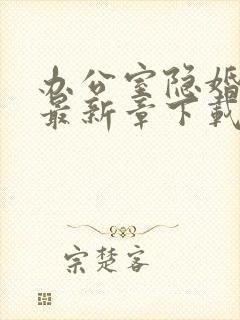 办公室隐婚
最新章下載
宗楚客